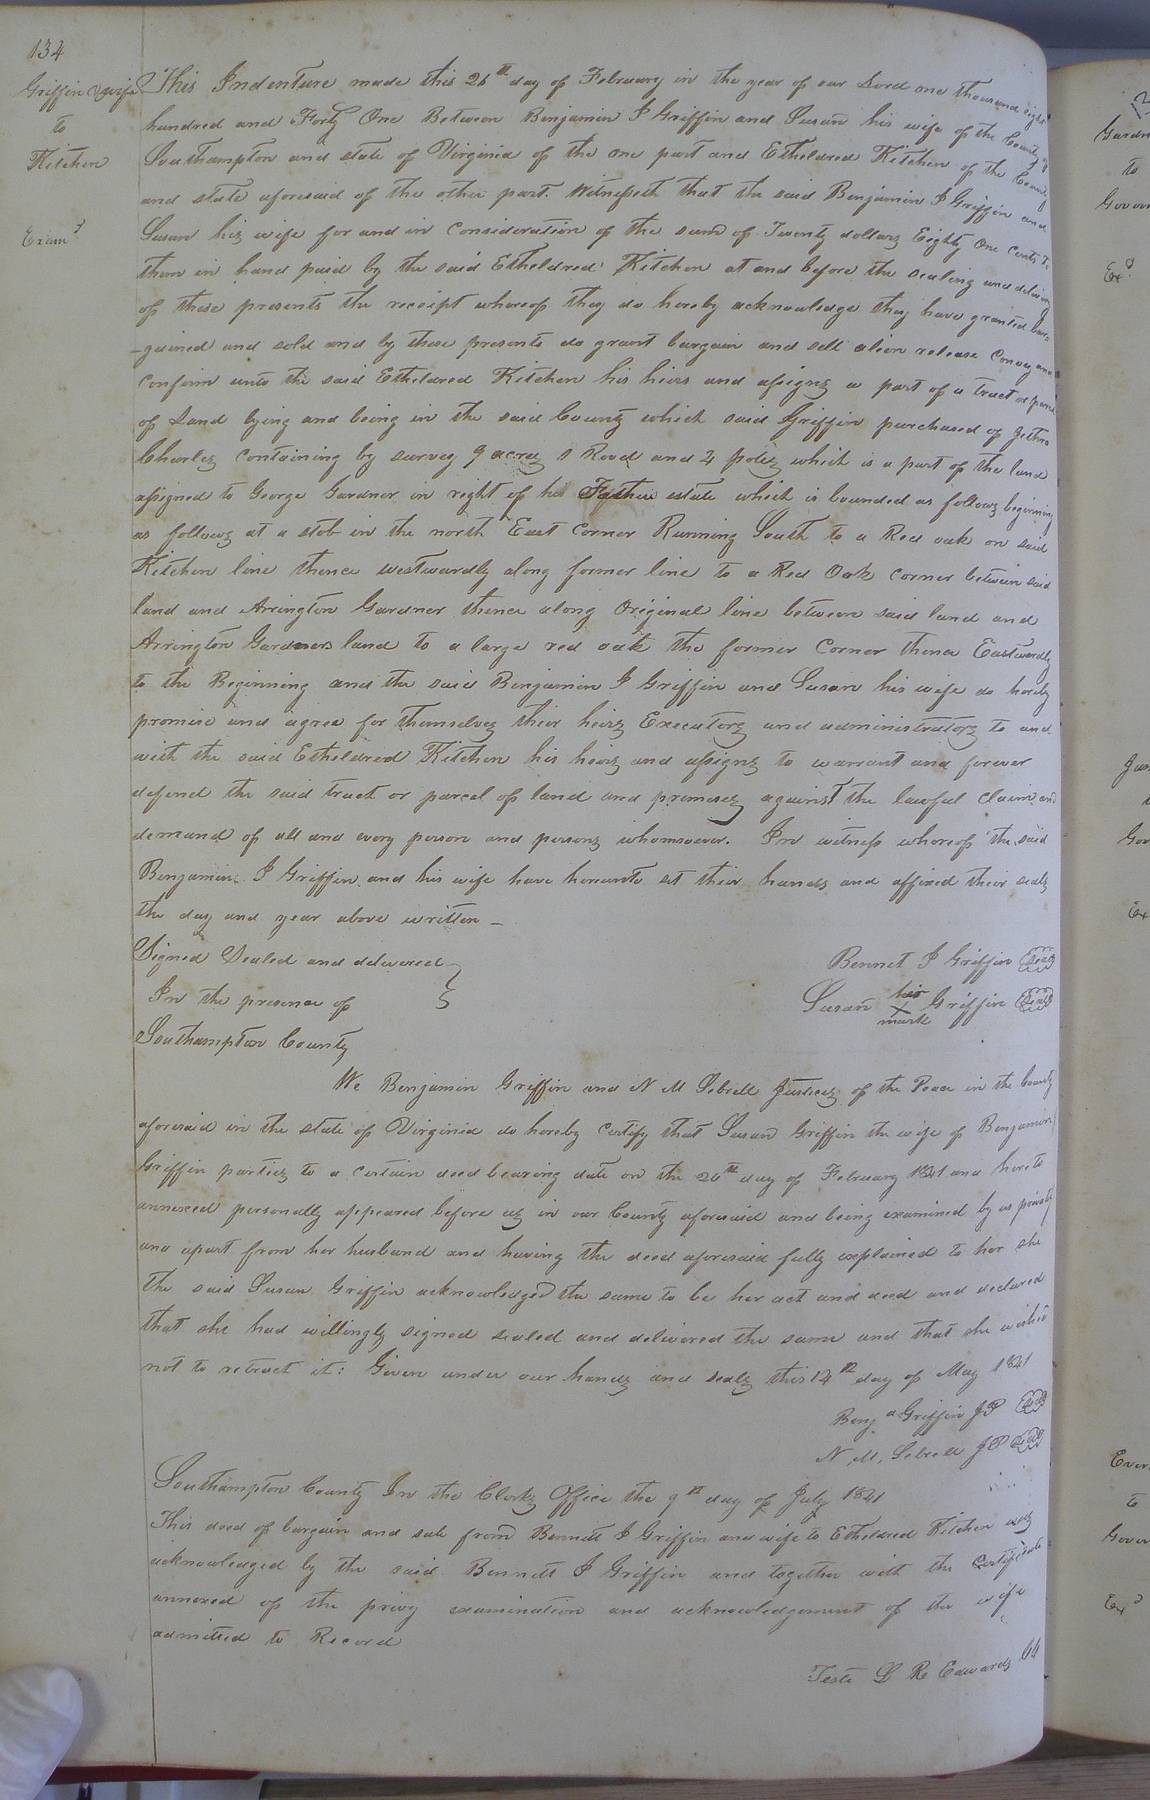 134
Griffin & wife
to
Kitchen
Exam.d
This Indenture made this 26th day of February in the year of our Lord one thousand eight
hundred and Forty One Between Benjamin J Griffin and Susan his wife of the County of
Southampton and state of Virginia of the one part and Etheldred Kitchen of the County
and state aforesaid of the other part. Witnesseth that the said Benjamin J Griffin and
Susan his wife for and in consideration of the sum of Twenty dollars Eighty One Cents to
them in hand paid by the said Etheldred Kitchen at and before the sealing and delivery
of these presents the receipt whereof they do hereby acknowledge they have granted bar
-gained and sold and by these presents do grant bargain and sell alien release Convey and
confirm unto the said Etheldred Kitchen his heirs and assigns a part of a tract or parcel
of Land lying and being in the said County which said Griffin purchased of
Charles containing by survey 9 acres 1 Rood and 24 poles which is a part of the land
assigned to George Gardner in right of his Father estate which is bounded as follows beginning
as follows at a stob in the north East Corner Running South to a Red oak on said
Kitchen line thence westwardly along former line to a Red Oak corner between said
land and Arrington Gardner thence along Original line between said land and
Arrington Gardners land to a large red oak the former Corner thence Eastwardly
to the Beginning and the said Benjamin J Griffin and Susan his wife do hereby
promise and agree for themselves their heirs Executors and administrators to and
with the said Etheldred Kitchen his heirs and assigns to warrant and forever
defend the said tract or parcel of land and premeses against the lawful claim and
demand of all and every person and persons whomsoever. In witness whereof the said
Benjamin J Griffin and his wife have hereunto set their hands and affixed their seals
the day and year above written —
Signed Sealed and delivered
In the presence of
Bennet J Griffin Seal
Susan her X mark Griffin Seal
Southampton County
We Benjamin Griffin and N M Sebrell Justices of the Peace in the County
aforesaid in the state of Virginia do hereby certify that Susan Griffin the wife of Benjamin
Griffin parties to a certain deed bearing date on the 26th day of February 1841 and hereto
annexed personally appeared before us in our County aforesaid and being examined by us privately
and apart from her husband and having the deed aforesaid fully explained to her she
the said Susan Griffin acknowledged the same to be her act and deed and declared
that she had willingly signed sealed and delivered the same and that she wished
not to retract it: Given under our hands and seals this 14th day of May 1841
Benja Griffin JP Seal
N. M. Sebrell JP Seal
Southampton County In the Clerks Office the 9th day of July 1841
This deed of bargain and sale from Bennett J Griffin and wife to Etheldred Kitchen was
acknowledged by the said Bennett J Griffin and together with the certificate
annexed of the privy examination and acknowledgement of the wife
admitted to Record
Teste L R Edwards CC
Gardn
to
Govern
Exd
Gov
Ex
Ever
to
Gover
Exd